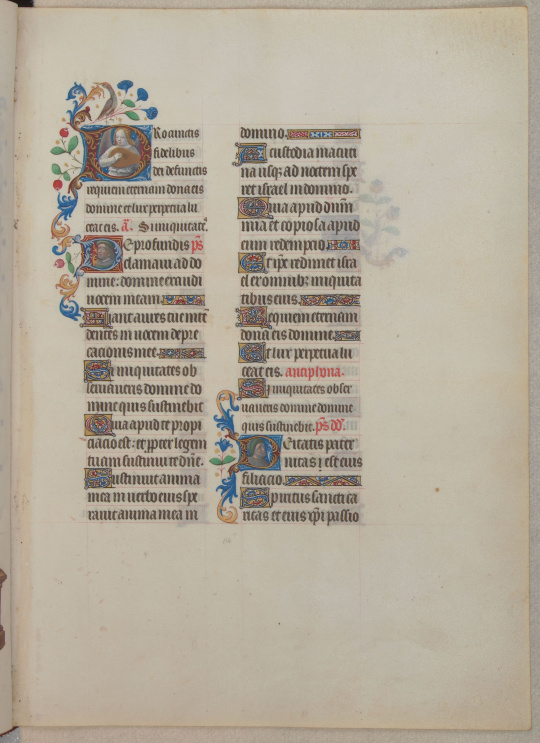 Pro cunctis
fidelibus
dei defunctis
requiem eternam dona eis
domine et lux perpetua lu
ceat eis. a. Si iniquitate
De profundis ps
clamavi ad do
mine: domine exaudi
vocem meam.
Fiant aures tue inten
dentes in vocem depre
cationis mee.
Si iniquitates ob
servaveris domine do
mine quis sustinebit
Quia apud te propi
ciacio est: et propter legem
tuam sustinui te dne.
Sustinuit anima
mea in verbo eius spe
ravit anima mea in
domino.
A custodia matuti
na usq; ad noctem spe
ret israel in domino.
Quia apud dnm
mia et copiosa apud
eum redempcio.
Et ipse redimet isra
el ex omnibus iniquita
tibus eius.
Requiem eternam
dona eis domine.
Et lux perpetua lu
ceat eis. antiphona.
Si iniquitates obser
vaveris domine domine
quis sustinebit. ps dd.
Deitatis pater
nitas
filiacio.
Spiritus sancti ca
ritas et eius xpi passio